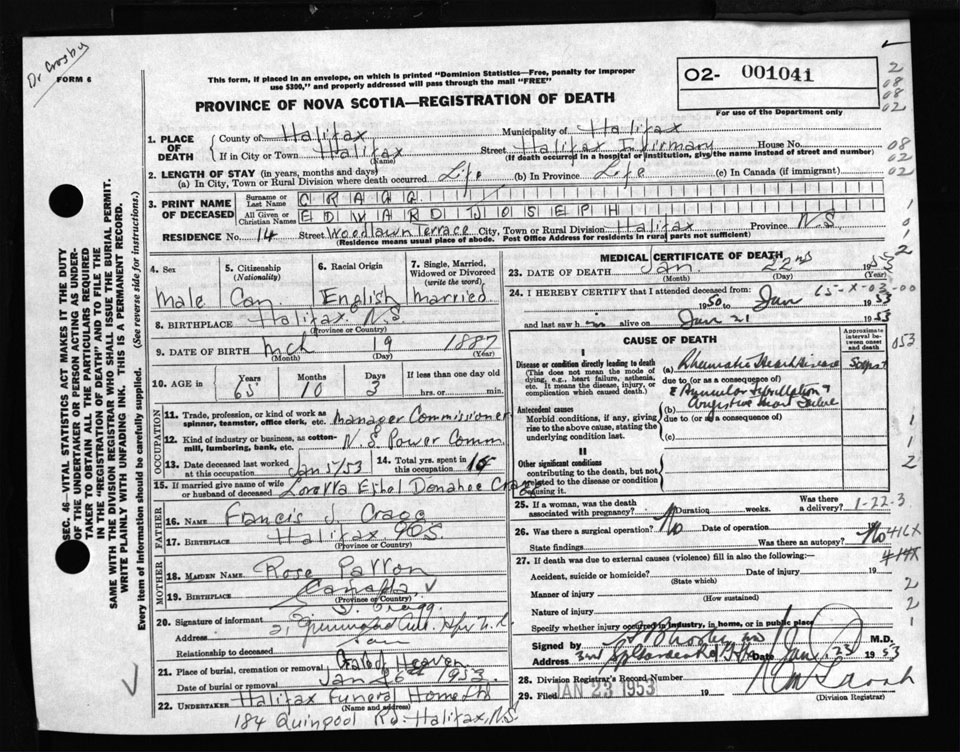 Dr Crosby
FORM 6
This form, if placed in an envelope, on which is printed "Dominion Statistics—Free, penalty for improper
use $300," and properly addressed will pass through the mail "FREE"
O2- 001041
For use of the Department only
PROVINCE OF NOVA SCOTIA—REGISTRATION OF DEATH
1. PLACE OF DEATH
County of Halifax Municipality of Halifax
If in City or Town Halifax Street Halifax Infirmary House No.
(Name) (If death occurred in a hospital or institution, give the name instead of street and number)
2. LENGTH OF STAY (in years, months and days)
(a) In City, Town or Rural Division where death occurred Life (b) In Province Life (c) In Canada (if immigrant)
3. PRINT NAME OF DECEASED
Surname or Last Name CRAGG
All Given or Christian Names EDWARD JOSEPH
RESIDENCE No. 14 Street Woodlawn Terrace City, Town or Rural Division Halifax Province N.S.
(Residence means usual place of abode. Post Office Address for residents in rural parts not sufficient)
4. Sex Male
5. Citizenship (Nationality) Can.
6. Racial Origin English
7. Single, Married, Widowed or Divorced (write the word) Married
8. BIRTHPLACE Halifax N.S
(Province or Country)
9. DATE OF BIRTH Mch 19 1887
(Month) (Day) (Year)
10. AGE in Years Months Days If less than one day old
65 10 3 hrs. or min.
OCCUPATION
11. Trade, profession, or kind of work as spinner, teamster, office clerk, etc. Manager Commissioner
12. Kind of industry or business, as cotton-mill, lumbering, bank, etc. N.S. Power Comm.
13. Date deceased last worked at this occupation Jan 5/53
14. Total yrs. spent in this occupation
15. If married give name of wife or husband of deceased Loretta Ethel Donahoe Cragg
FATHER
16. NAME Francis J. Cragg
17. BIRTHPLACE Halifax
(Province or Country)
MOTHER
18. MAIDEN NAME Rose
19. BIRTHPLACE Canada
(Province or Country)
20. Signature of informant Cragg
Address
Relationship to deceased Son
21. Place of burial, cremation or removal Gate of Heaven
Date of burial or removal Jan 26th 1953.
22. UNDERTAKER Halifax Funeral Home
(Name and address)
184 Quinpool Rd. Halifax, N.S.
MEDICAL CERTIFICATE OF DEATH
23. DATE OF DEATH Jan. 22nd 1953
(Month) (Day) (Year)
24. I HEREBY CERTIFY that I attended deceased from:
1950 to Jan 1953
and last saw him alive on Jan 21 1953
CAUSE OF DEATH
Approximate interval between onset and death
I
Disease or condition directly leading to death
(This does not mean the mode of dying, e.g., heart failure, asthenia, etc. It means the disease, injury, or complication which caused death.)
(a) Rheumatic Heart Disease
due to (or as a consequence of)
Auricular Fibrillation &
Congestive Heart Failure
Antecedent causes
Morbid conditions, if any, giving rise to the above cause, stating the underlying condition last.
(b)
due to (or as a consequence of)
(c)
II
Other significant conditions
contributing to the death, but not related to the disease or condition causing it.
25. If a woman, was the death associated with pregnancy? Duration weeks. Was there a delivery?
1-22-3
26. Was there a surgical operation? No Date of operation
State findings Was there an autopsy? No
416X
414X
27. If death due to external causes (violence) fill in also the following:—
Accident, suicide or homicide? Date of injury 19
(State which)
Manner of injury
(How sustained)
Nature of injury
Specify whether injury occurred in industry, in home, or in public place
Signed by M.D.
Address Date Jan 23 1953
28. Division Registrar's Record Number
29. Filed JAN 23 1953 19
(Division Registrar)
SEC. 46—VITAL STATISTICS ACT MAKES IT THE DUTY
OF THE UNDERTAKER OR PERSON ACTING AS UNDER-
TAKER TO OBTAIN ALL THE PARTICULARS REQUIRED
IN THE "REGISTRATION OF DEATH" AND TO FILE THE
SAME WITH THE DIVISION REGISTRAR WHO SHALL ISSUE THE BURIAL PERMIT.
WRITE PLAINLY WITH UNFADING INK. THIS IS A PERMANENT RECORD.
Every item of information should be carefully supplied. (See reverse side for instructions.)